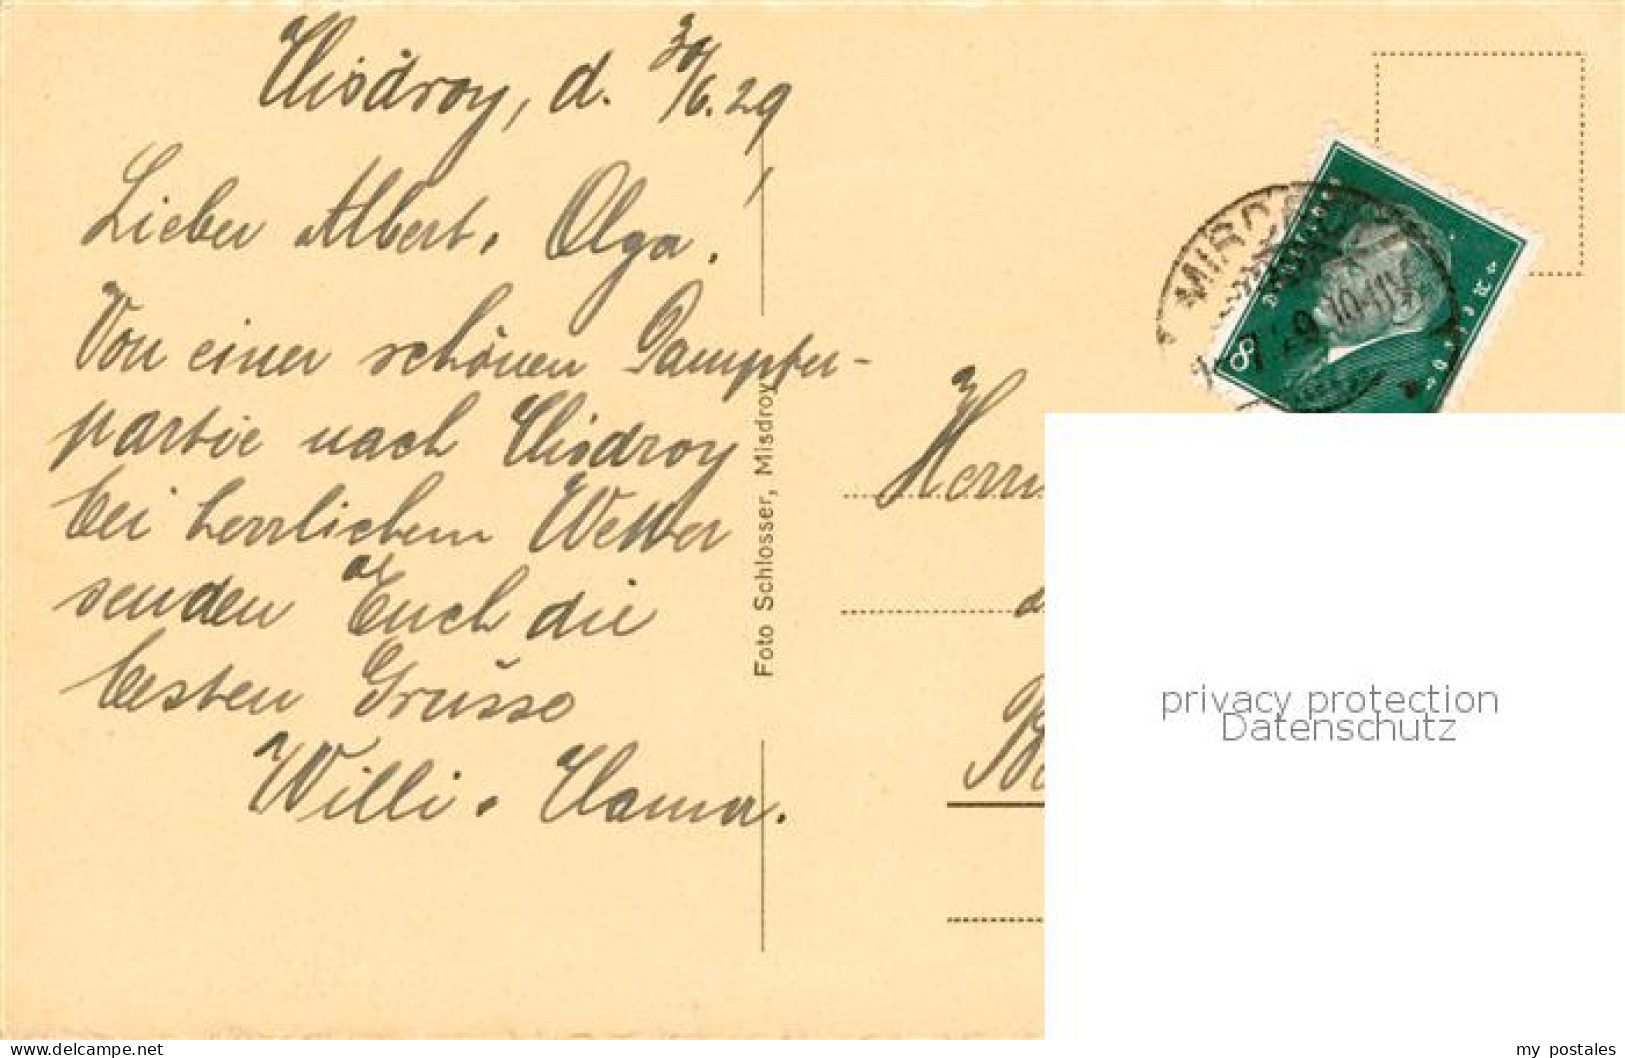 Misdroy, d. 30/6.29
Lieber Albert, Olga.
Von einer schönen Dampfer-
partie nach Misdroy
bei herrlichem Wetter
senden Euch die
besten Grüsse
Willi.
Foto Schlosser, Misdroy
8
10-11
Herrn
privacy protection
Datenschutz
delcampe.net
my_postales